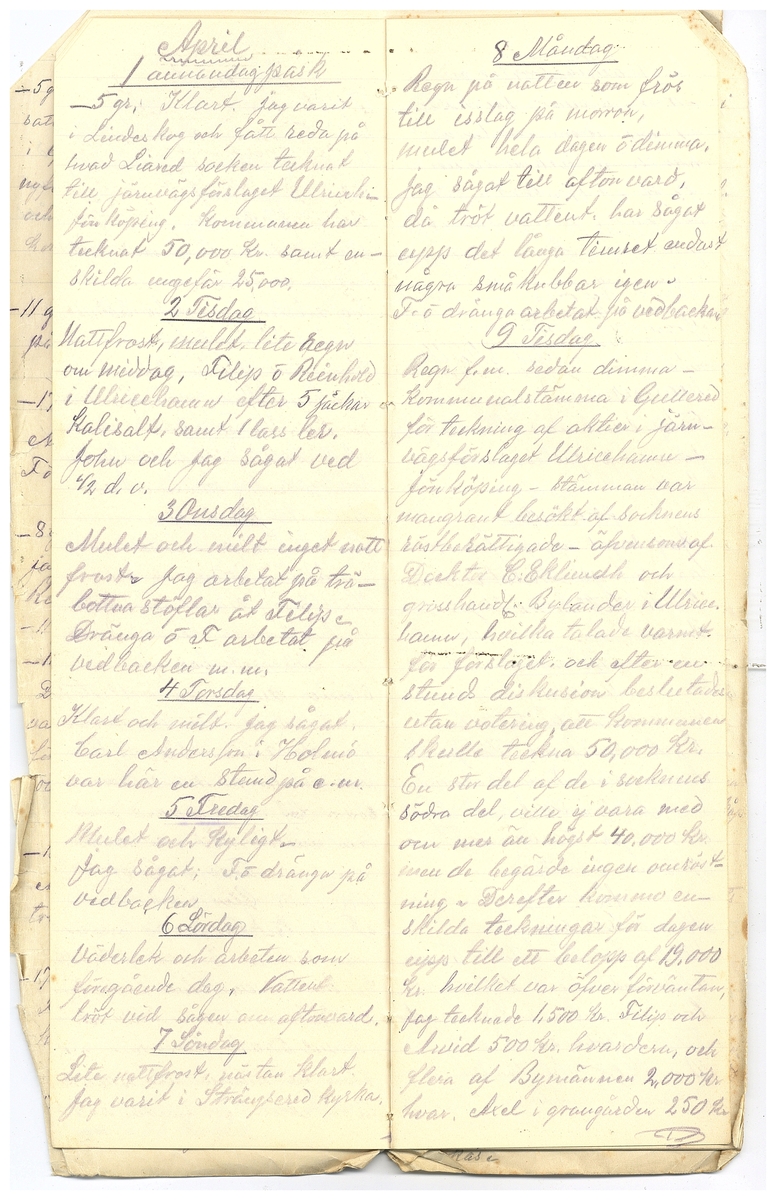 April
1 annandag påsk
–5 gr. Klart. Jag varit
i Lindeskog och fått reda på
hvad Liared socken tecknat
till järnvägsförslaget Ulriceh–
Jönköping. Kommunen har
tecknat 50,000 Kr. samt en–
skilda ungefär 25,000.
2 Tisdag
Nattfrost, mulet. lite regn
om middag, Filip o Reinhold
i Ulricehamn efter 5 säckar
Kalisalt, samt 1 lass ler.
John och Jag sågat ved
1/2 d. v.
3 Onsdag
Mulet och milt inget natt
frost. Jag arbetat på trä–
bottna stöflar åt Filip.
Dränga o F arbetat på
vedbacken m. m.
4 Torsdag
Klart och milt. Jag sågat.
Carl Andersson i Holmö
var här en stund på e. m.
5 Fredag
Mulet och Kyligt.
Jag sågat; F o dränga på
vedbacken
6 Lördag
Väderlek och arbeten som
föregående dag. Vattent
tröt vid sågen om aftonvard.
7 Söndag
Lite nattfrost, nästan Klart.
Jag varit i Strängsered Kyrka.
8 Måndag
Regn på natten som frös
till isslag på morron,
mulet hela dagen o dimma.
Jag sågat till aftonvard,
då tröt vattent. har sågat
upp det långa timret endast
några småkubbar igen.
F o dränga arbetat på vedbacken
9 Tisdag
Regn f. m. sedan dimma –
Kommunalstämma i Gullered
för teckning af aktier i järn–
vägsförslaget Ulricehamn –
Jönköping – stämman var
mangrant besökt af socknens
röstberättigade – äfvensom af
Docktor C. Eklundh och
grosshandl. Bylander i Ulrice–
hamn, hvilka talade varmt
för förslaget. och efter en
stunds diskusion beslutades
utan votering, att Kommunen
skulle teckna 50,000 Kr.
En stor del af de i socknens
södra del, ville ej vara med
om mer än högst 40,000 Kr.
men de begärde ingen omröst–
ning. Derefter kommo en–
skilda teckningar för dagen
upp till ett belopp af 19,000
Kr. hvilket var öfver förväntan,
Jag tecknade 1,500 Kr. Filip och
Arvid 500 Kr. hvardera, och
flera af Bymännen 2,000 Kr
hvar. Axel i grangården 250 Kr